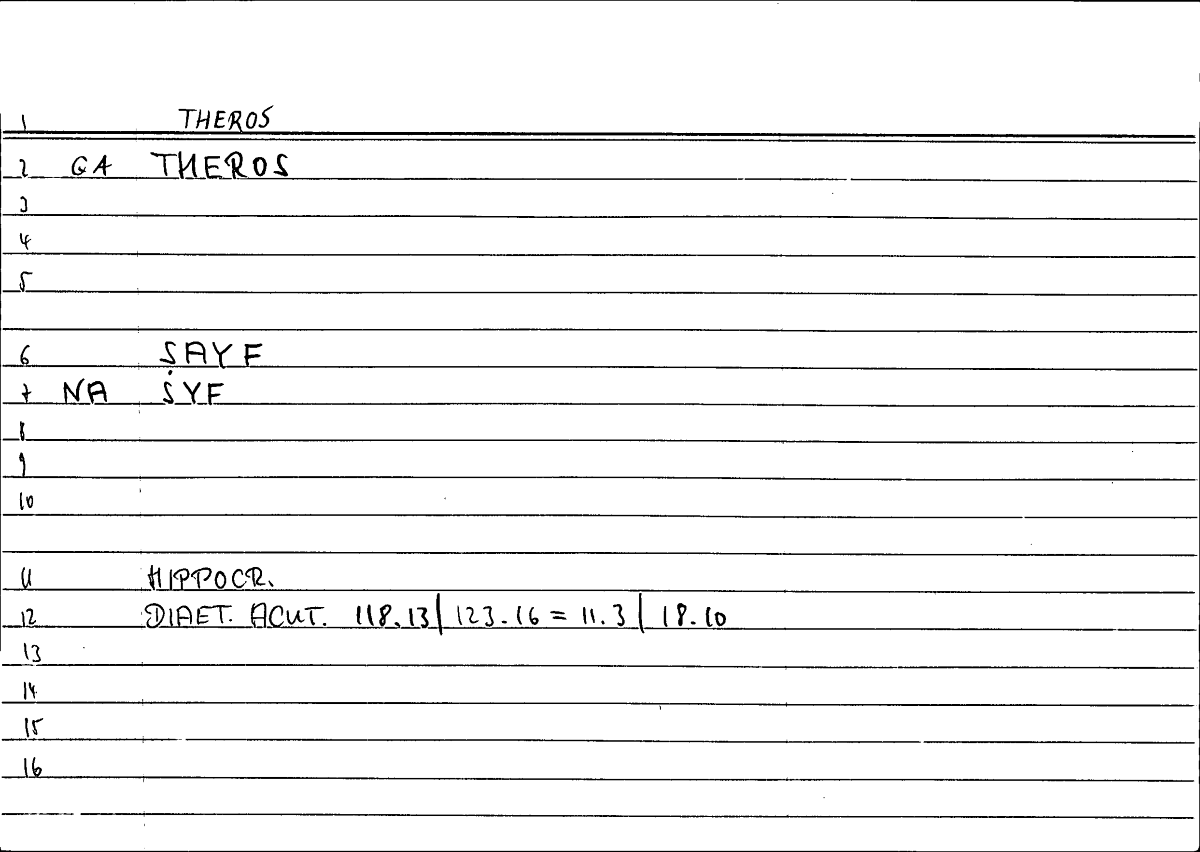 1 THEROS
2 GA THEROS
3
4
5
6 ṢAYF
7 NA ṢYF
8
9
10
11 HIPPOCR.
12 DIAET. ACUT. 118.13| 123.16 = 11.3 | 18.10
13
14
15
16